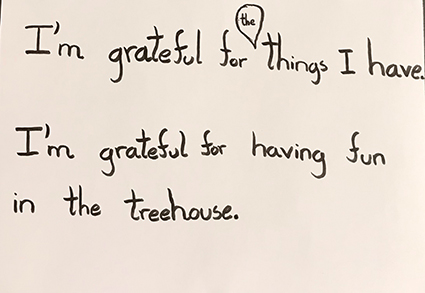 I'm grateful for the things I have.
I'm grateful for having fun
in the treehouse.